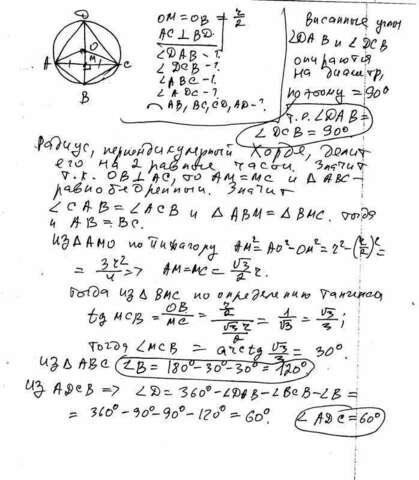 D
O
A
M
C
B
OM = OB = r/2
AC ⊥ BD
∠DAB - ?
∠DCB - ?
∠ABC - ?
∠ADC - ?
◠ AB, BC, CD, AD - ?
Вписанные углы
∠DAB и ∠DCB
опираются
на диаметр,
поэтому = 90°
т.е. ∠DAB =
∠DCB = 90°.
Радиус, перпендикулярный хорде, делит
его на 2 равные части. Значит
т.к. OB ⊥ AC, то AM = MC и △ABC -
равнобедренный. Значит
∠CAB = ∠ACB и △ABM = △BMC. Тогда
и AB = BC.
Из △AMO по Пифагору AM² = AO² - OM² = r² - (r/2)² =
= 3r²/4 => AM = MC = √3/2 r.
Тогда из △BMC по определению тангенса
tg MCB = OB/MC = (r/2)/(√3 r/2) = 1/√3 = √3/3;
Тогда ∠MCB = arctg √3/3 = 30°.
Из △ABC ∠B = 180° - 30° - 30° = 120°.
Из ADCB => ∠D = 360° - ∠DAB - ∠BCB - ∠B =
= 360° - 90° - 90° - 120° = 60°. ∠ADC = 60°